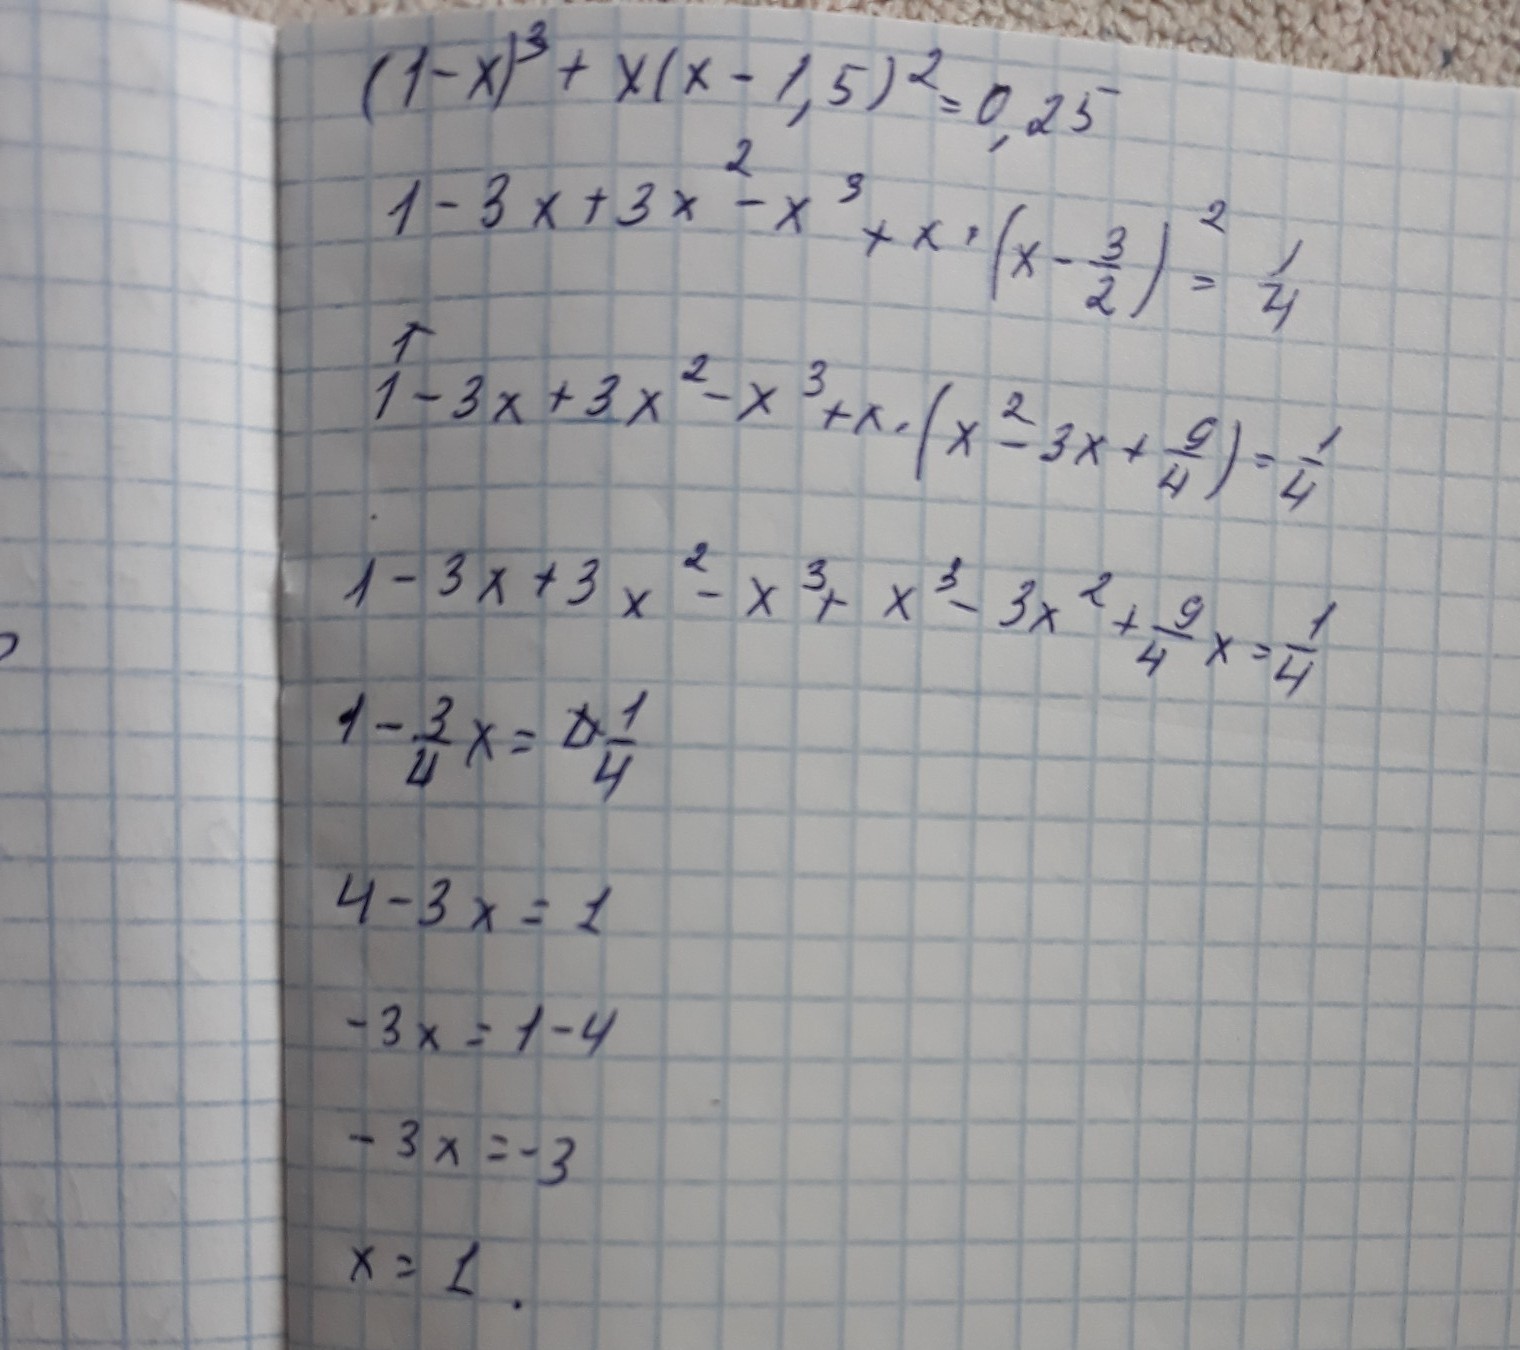 (1-x)³ + x(x - 1,5)² = 0,25
1 - 3x + 3x² - x³ + x · (x - 3/2)² = 1/4
1
1 - 3x + 3x² - x³ + x · (x² - 3x + 9/4) = 1/4
1 - 3x + 3x² - x³ + x³ - 3x² + 9/4 x = 1/4
1 - 3/4 x = 1/4
4 - 3x = 1
-3x = 1 - 4
-3x = -3
x = 1.